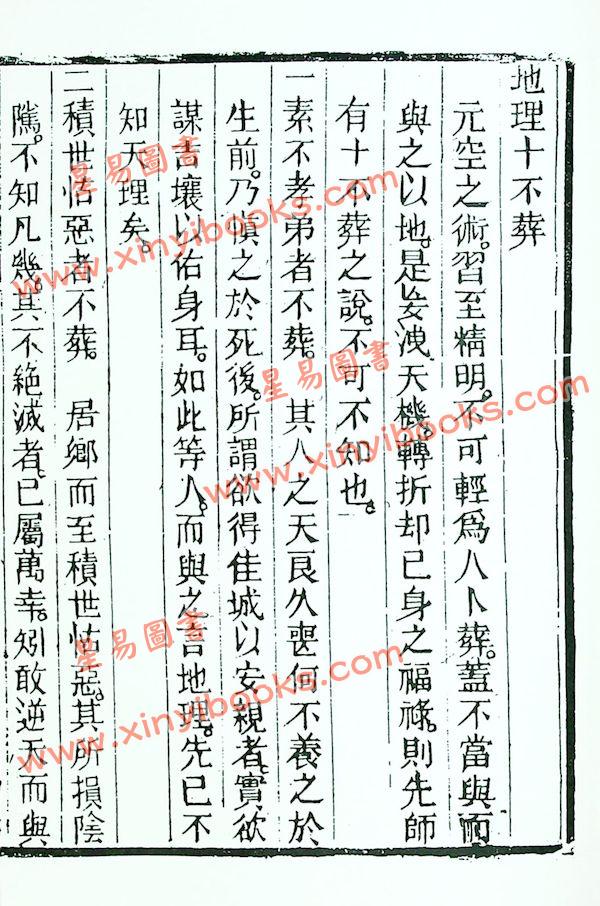 地理十不葬
元空之術。習至精明。不可輕爲人卜葬。蓋不當與而
與之以地。是妄洩天機。轉折却己身之福祿。則先師
有十不葬之說。不可不知也。
一素不孝弟者不葬。 其人之天良久喪何不養之於
生前。乃慎之於死後。所謂欲得佳城以安親者。實欲
謀吉壤以佑身耳。如此等人。而與之言地理。先已不
知天理矣。
二積世怙惡者不葬。 居鄉而至積世怙惡。其所損陰
隲。不知凡幾。其不絕滅者。已屬萬幸。矧敢逆天而與
星易圖書
www.xinyibooks.com
星易圖書
www.xinyibooks.com
星易圖書
www.xinyibooks.com